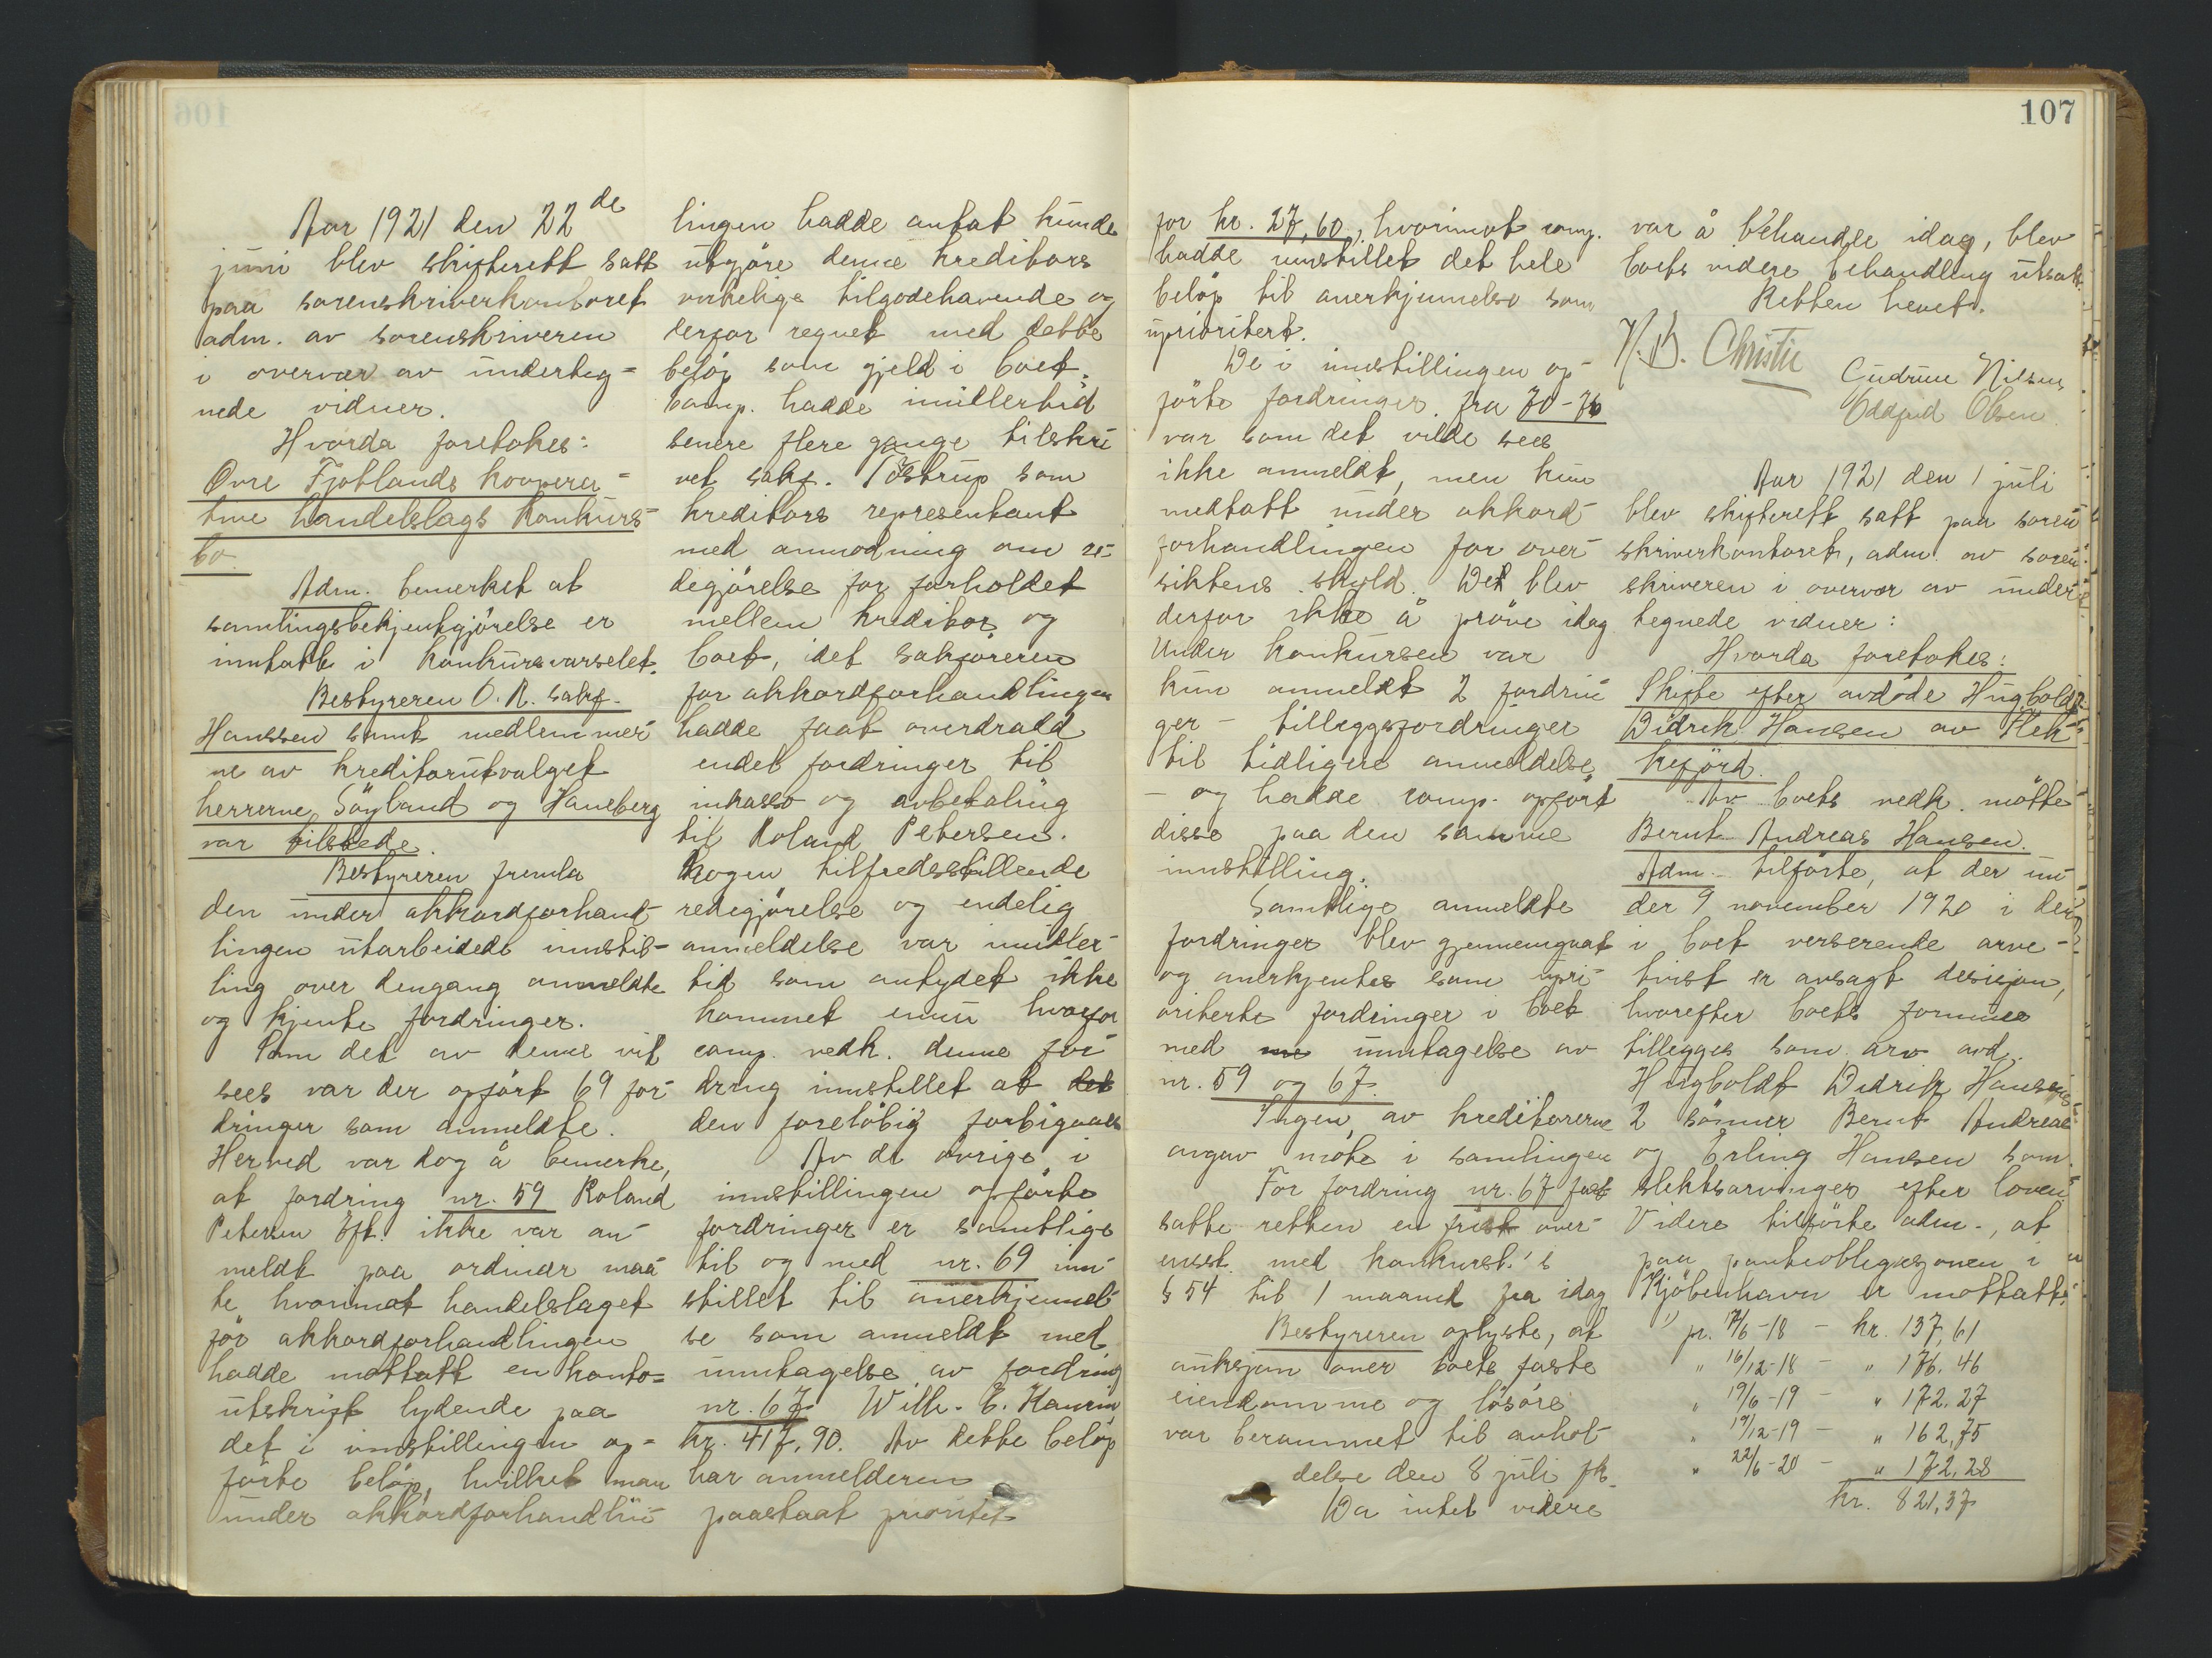 106
Aar 1921 den 22de
juni blev skifterett satt
paa sorenskriverkontoret
adm. av sorenskriveren
i overvær av underteg=
nede vidner.
Hvorda foretokes:
Øvre Fjotlands koopera=
tive handelslags konkurs-
bo.
Adm. bemerket at
samlingsbekjentgjörelse er
inntatt i konkursvarselet.
Bestyreren O.R. sakf.
Hanssen samt medlemmer
ne av kreditorutvalget
herrerne Söyland og Haneberg
var tilstede.
Bestyreren fremla
den under akkordforhand
lingen utarbeidede innstil-
ling over dengang anmeldte
og kjente fordringer.
Som det av denne vil
sees var der opfört 69 for-
dringer som anmeldte.
Herved var dog å bemerke,
at fordring nr. 59 Roland
Petersen Eft. ikke var an-
meldt paa ordinær maa-
te hvorimot handelslaget
för akkordforhandlingen
hadde mottatt en konto=
utskrift lydende paa
det i innstillingen op=
förte belöp, hvilket man
under akkordforhandlin-
lingen hadde antat kunde
utgjöre denne kreditors
virkelige tilgodehavende og
derfor regnet med dette
belöp som gjeld i boet.
Comp. hadde imidlertid
senere flere gange tilskre
vet sakf. Tostrup som
kreditors representant
med anmodning om re-
degjörelse for forholdet
mellem kreditor og
boet, idet sakföreren
for akkordforhandlingen
hadde faat overdradd
endel fordringer til
inkasso og avbetaling
til Roland Petersen.
Nogen tilfredsstillende
redegjörelse og endelig
anmeldelse var imidler-
tid som antydet ikke
kommet ennu hvorfor
comp. vedk. denne for-
dring innstillet at det
den foreløbig forbigaaes
Av de övrige i
innstillingen opförte
fordringer er samtlige
til og med nr. 69 inn-
stillet til anerkjennel-
se som anmeldt med
unntagelse av fordring
nr. 67 Wilh. E. Kaurin
kr. 417.90. Av dette belöp
har anmelderen
paastaat prioritet
107
for kr. 27,60, hvorimot comp.
hadde innstillet det hele
belöp til anerkjennelse som
uprioritert.
De i innstillingen op-
förte fordringer fra 70-76
var som det vilde sees
ikke anmeldt, men kun
medtatt under akkord-
forhandlingen for over-
siktens skyld. Det blev
derfor ikke å pröve idag
Under konkursen var
kun anmeldt 2 fordrin-
ger - tilleggsfordringer
til tidligere anmeldelse
- og hadde comp. opfört
disse paa den samme
innstilling.
Samtlige anmeldte
fordringer blev gjennemgaat
og anerkjentes som upri-
oriterte fordringer i boet
med unntagelse av
nr. 59 og 67.
Ingen av kreditorerne
avgav möte i samlingen
For fordring nr. 67 fast
satte retten en frist over-
ensst. med konkursl.'s
§ 54 til 1 maaned fra idag
Bestyreren oplyste, at
auksjon over boets faste
eiendomme og lösöre
var berammet til avhol-
delse den 8 juli fk.
Da intet videre
var å behandle idag, blev
boets videre behandling utsatt.
Retten hevet.
Christie
Gudrun Nilsen
Oddfrid Olsen
Aar 1921 den 1 juli
blev skifterett satt paa soren-
skriverkontoret, adm. av soren-
skriveren i overvær av under-
tegnede vidner:
Hvorda foretokes:
Skifte efter avdöde Hugboldt
Didrik Hansen av Flek-
kefjord.
Av boets vedk. mötte
Bernt Andreas Hansen.
Adm. tilförte, at der un-
der 9 november 1920 i den
i boet verserende arve-
tvist er avsagt desisjon,
hvorefter boets formue
tillegges som arv avd.
Hugboldt Didrik Hansens
2 sönner Bernt Andreas
og Erling Hansen som
slektsarvinger efter loven
Videre tilförte adm., at
paa panteobligasjonen i
Kjöbenhavn er mottatt:
pr. 17/6-18 - kr. 137,61
" 16/12-18 - " 176.46
" 19/6-19 - " 172.27
" 19/12-19 - " 162,75
" 22/6-20 - " 172,28
kr. 821,37